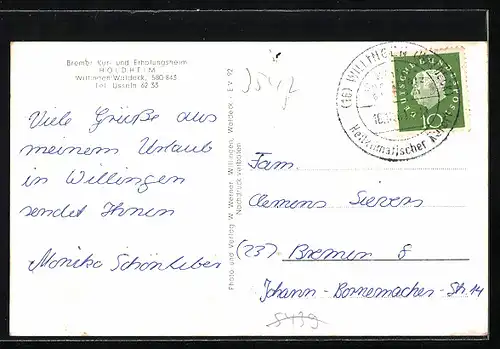 Bremer Kur- und Erholungsheim
HOLDHEIM
Willingen/Waldeck, 580-843
Tel. Usseln 62 33
Viele Grüße aus
meinem Urlaub
in Willingen
sendet Ihnen
Monika Schönleber
Photo und Verlag W. Werner, Willingen, Waldeck, E v 92
Nachdruck verboten
(16) WILLINGEN
Heilklimatischer
DEUTSCHE BUNDESPOST
10
Fam.
Clemens Sievers
(23) Bremen 8
Johann-Bornemacher-Str. 14